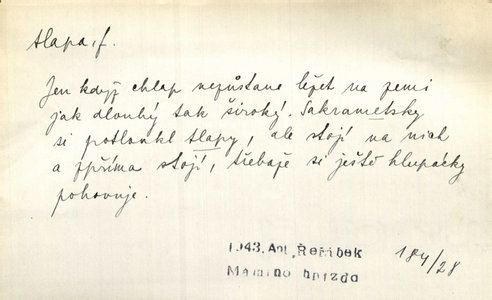 tlapa, f.
Jen když chlap nezůstane ležet na zemi
jak dlouhý tak široký. Sakrametsky
si potloukl tlapy, ale stojí na nich
a zpříma stojí, třebaže si ještě hlupácky
pohovuje.
1943. Ant. Řeřábek
Mamino hnízdo
184/28